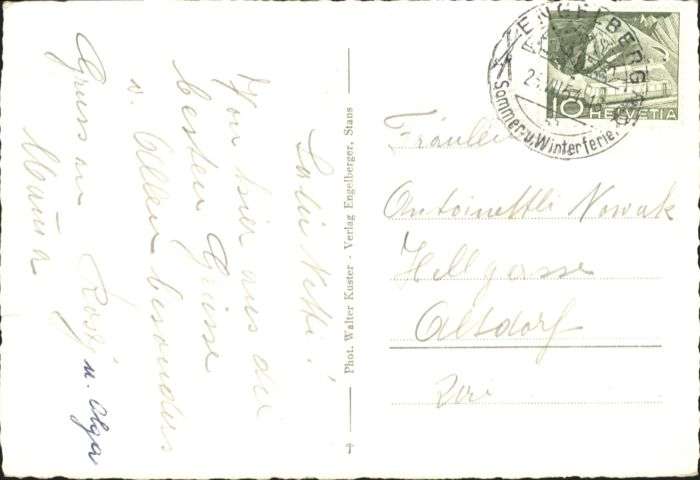 Salü Netti!
Von hier aus die
besten Grüsse
v. Allen besonders
Rosj u. Olga
Gruss an
Mama
Phot. Walter Kuster - Verlag Engelberger, Stans
ENGELBERG
Sommer- u. Winterferien
10 HELVETIA
Fräulein
Antoinettli Nowak
Hellgasse
Altdorf
Uri